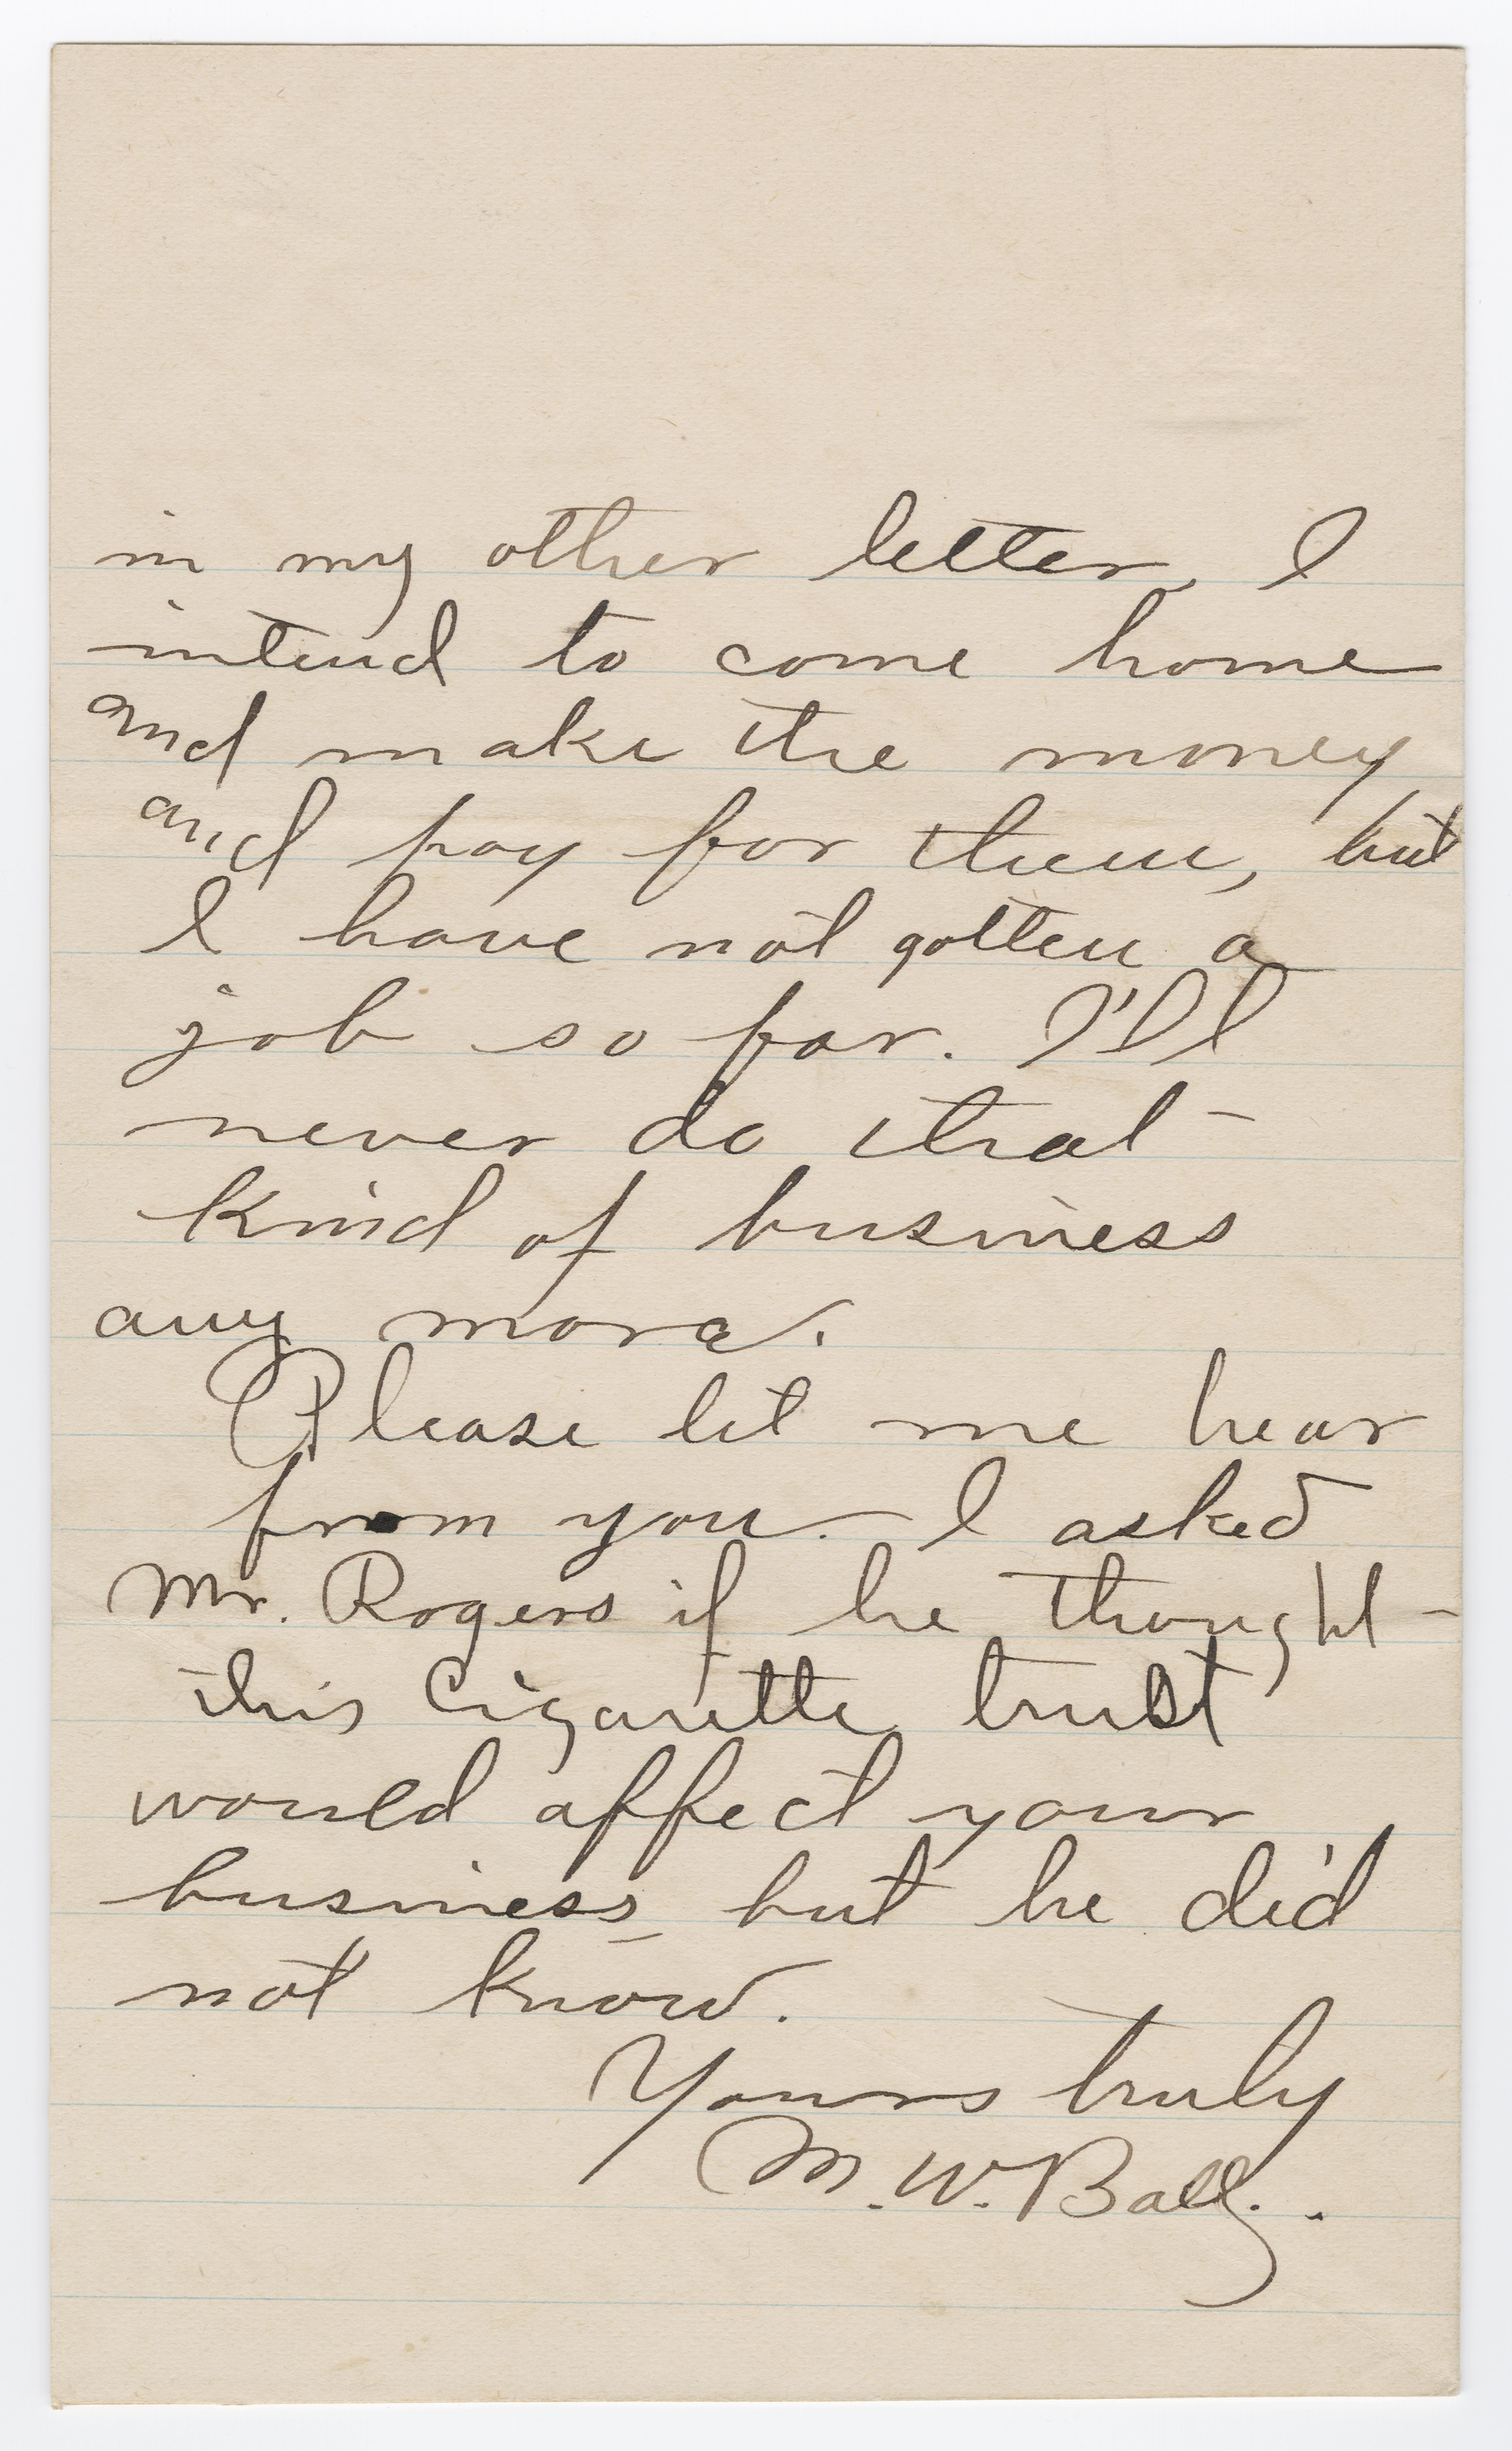 in my other letter, I
intend to come home
and make the money
and pay for them, but
I have not gotten a
job so far. I'll
never do that
kind of business
any more.
Please let me hear
from you. I asked
Mr. Rogers if he thought
this Cigarette trust
would affect your
business but he did
not know.
Yours truly
M. W. Ball.